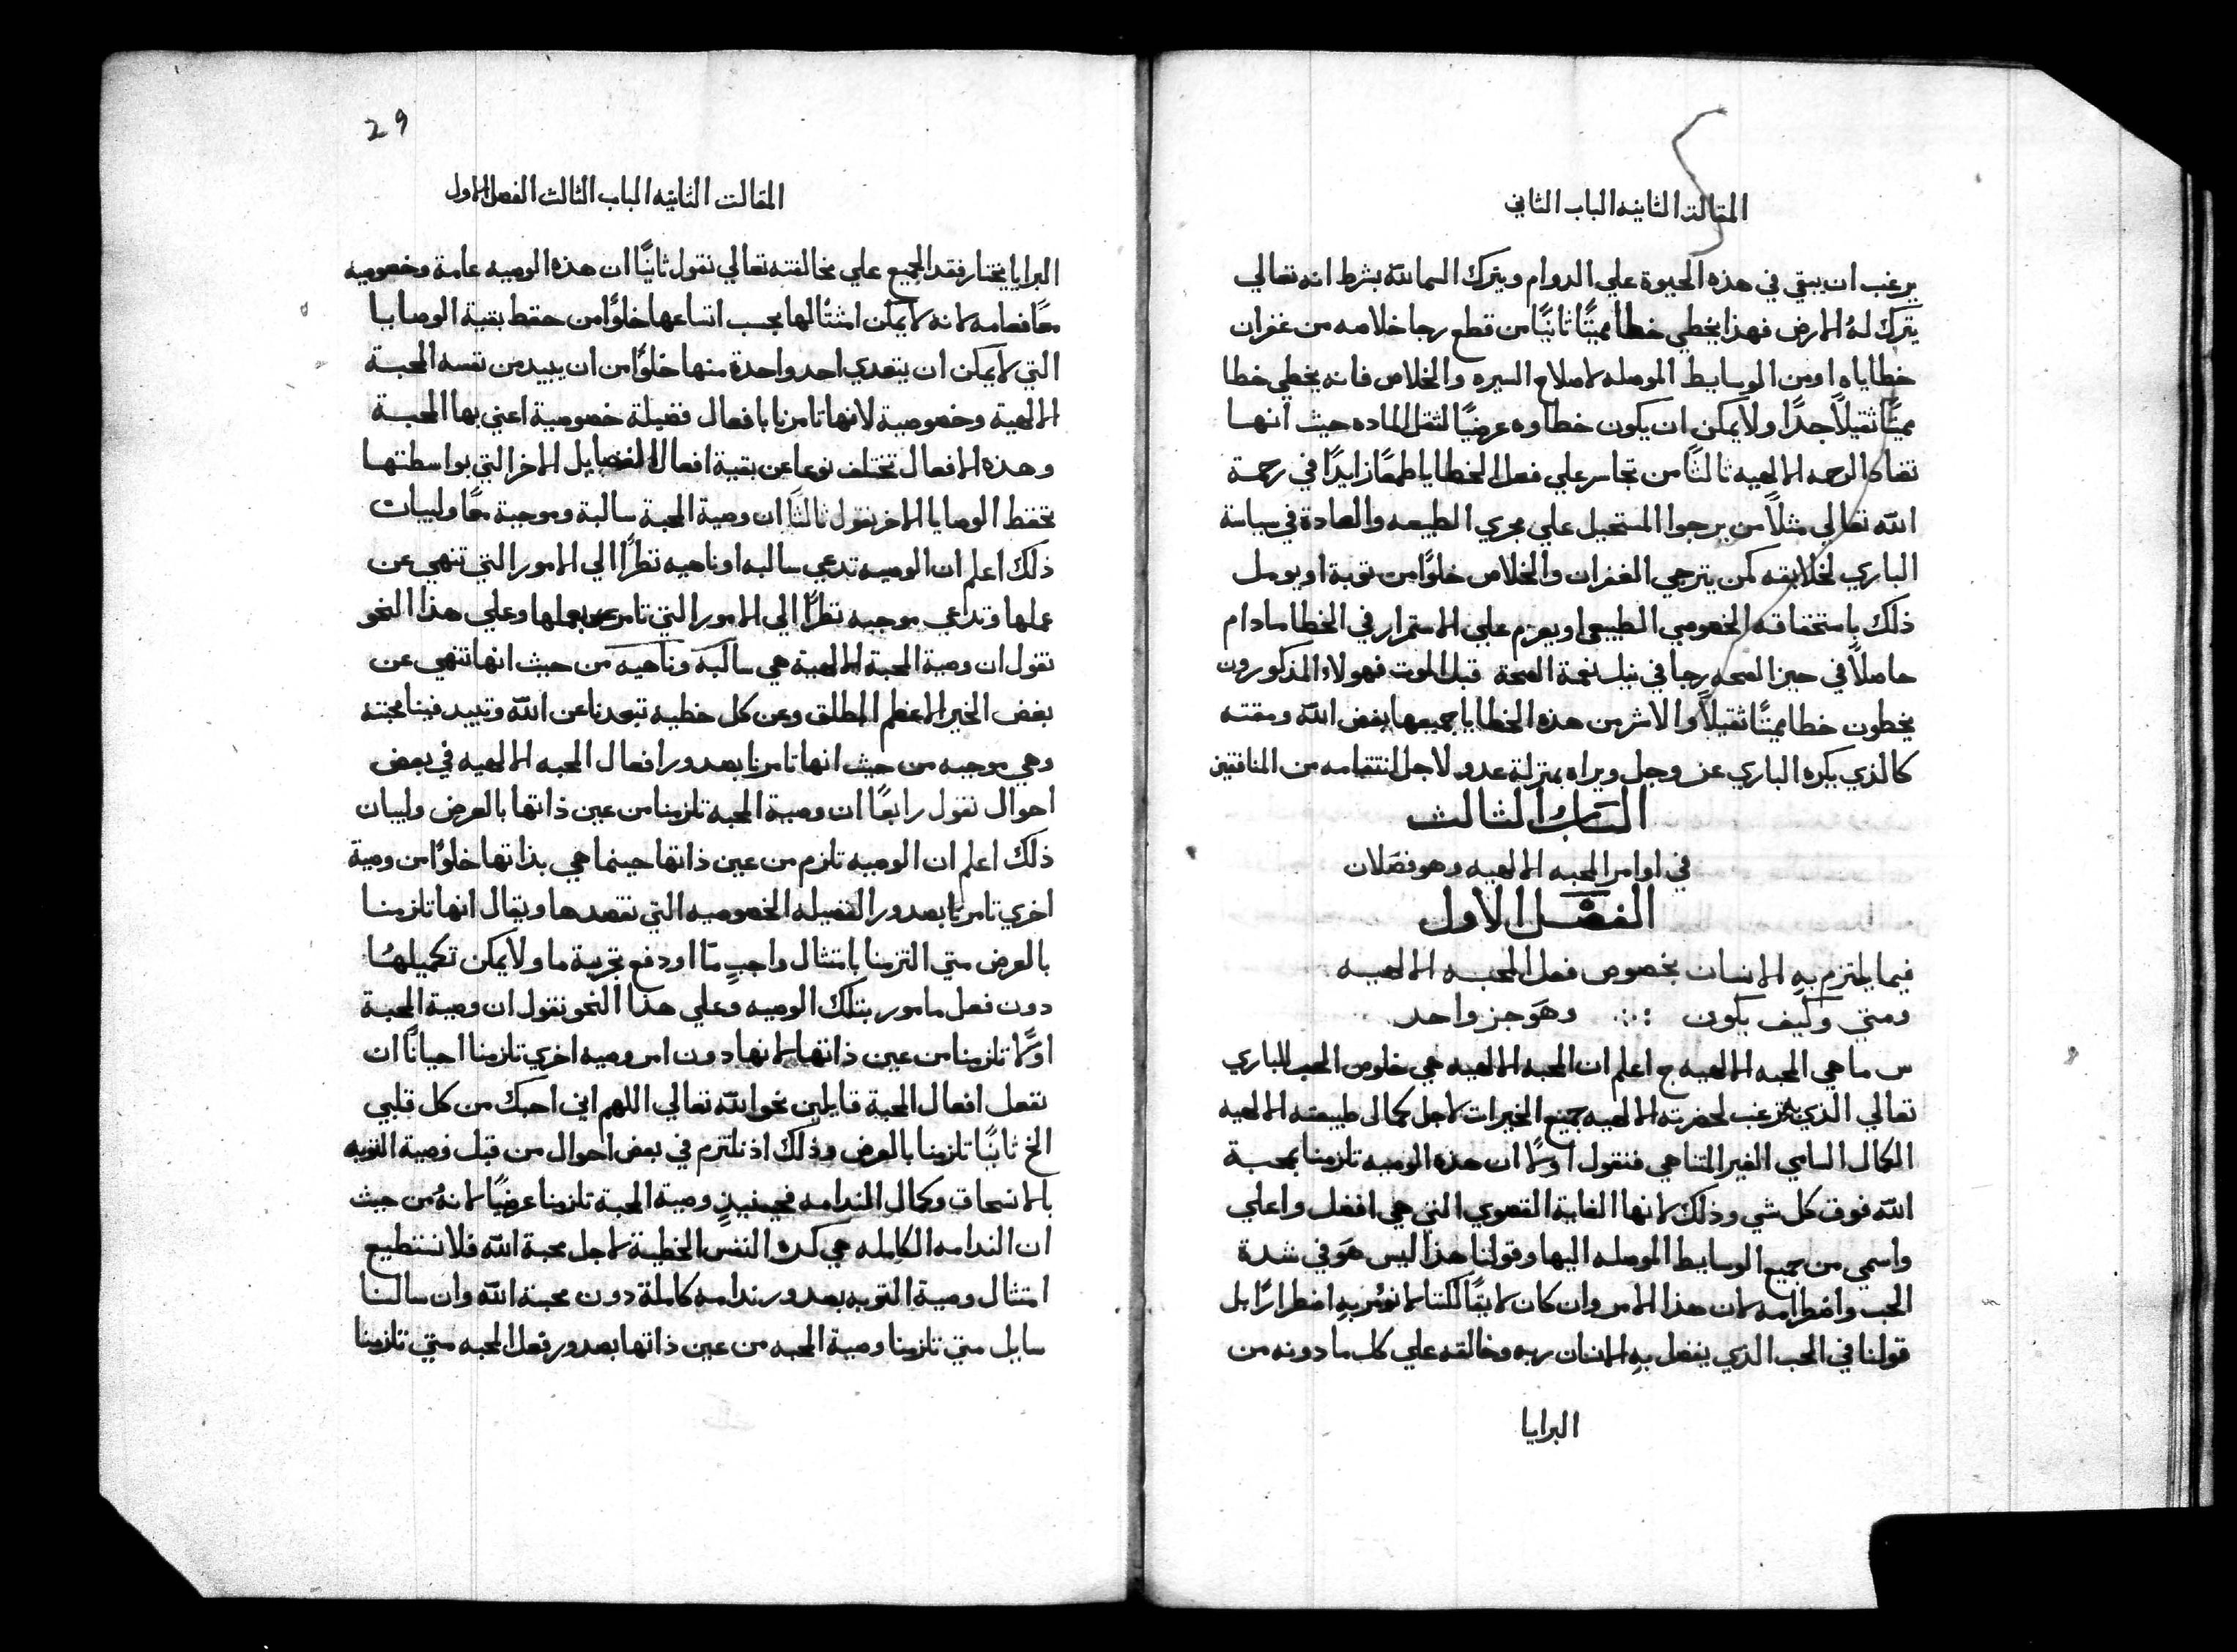 المقالة الثانيه الباب الثاني
يرغب ان يبقي في هذه الحيوة علي الدوام ويترك السما لله بشرط انه تعالي
يترك لهُ الارض فهذا يخطي خطا مميتًا ثانيًا من قطع رجا خلاصه من غفران
خطاياه اومن الوسايط الموصله لاصلاح السيره والخلاص فانه يخطي خطا
مميتًا ثقيلاً جدًا ولا يمكن ان يكون خطاوه عرضيًا لثقل الماده حيث انها
تضاد الرحمه الالهيه ثالثًا من تجاسر علي فعل الخطايا طمعًا زايدًا في رحمة
الله تعالي مثلاً من يرجوا المستحيل علي مجري الطبيعه والعادة في سياسة
الباري لخلايقه كمن يترجي الغفران والخلاص خلوًا من توبة او يومل
ذلك باستحقاقه الخصومي الطبيعي او يعزم علي الاستمرار في الخطا مادام
حاصلاً في حيز الصحه رجا في نيل نعمة الصحة قبل الموت فهولاء المذكورون
يخطون خطا مميتًا ثقيلاً والاشر من هذه الخطايا جميعها بغض الله ومقته
كالذي يكره الباري عز وجل ويراه بمنزلة عدو لاجل انتقامه من المنافقين
الباب الثالث
في اوامر المحبه الالهيه وهو فصلان
الفصل الاول
فيما يلتزم بهِ الانسان بخصوص فعل المحبه الالهيه
ومتي وكيف يكون وهوَ جز واحد
س ما هي المحبه الالهيه ج اعلم ان المحبه الالهيه هي خلوص الحب للباري
تعالي الذي به نرغب لحضرته الالهيه جميع الخيرات لاجل كمال طبيعته الالهيه
الكمال السامي الغير المتناهي فنقول اولاً ان هذه الوصيه تلزمنا بمحبة
الله فوق كل شي وذلك لانها الغاية القصوي التي هي افضل واعلي
واسمي من جميع الوسايط الموصله اليها وقولنا هذا ليس هوَ في شدة
الحب واضطرامه لان هذا الامر وان كان لايقًا لكننا لا نومر بهِ اضطرارًا بل
قولنا في الحب الذي يفضل بهِ الانسان ربه وخالقه علي كل ما دونه من
البرايا
29
المقالت الثانيه الباب الثالث الفصل الاول
البرايا يختار فقد الجميع علي مخالفته تعالي نقول ثانيًا ان هذه الوصيه عامة وخصوصيه
معًا فعامه لانه لا يمكن امتثالها بحسب اتساعها خلوًا من حفظ بقية الوصايا
التي لا يمكن ان يتعدي احد واحدة منها خلوًا من ان يبيد من نفسه المحبة
الالهية وخصوصية لانها تامرنا بافعال فضيلة خصوصية اعني بها المحبة
وهذه الافعال تختلف نوعا عن بقية افعال الفضايل الاخر التي بواسطتها
تحفظ الوصايا الاخر نقول ثالثًا ان وصية المحبة سالبة وموجبة معًا ولبيات
ذلك اعلم ان الوصيه تدعي سالبه او ناهيه نظرًا الي الامور التي تنهي عن
عملها وتدعي موجبه نظرًا الي الامور التي تامر بعملها وعلي هذا النحو
نقول ان وصية المحبة الالهية هي سالبه وناهيه من حيث انها تنهي عن
بغض الخير الاعظم المطلق وعن كل خطيه تبعدنا عن الله وتبيد فينا محبته
وهي موجبه من حيث انها تامرنا بصدور افعال المحبه الالهيه في بعض
احوال نقول رابعًا ان وصية المحبة تلزمنا من عين ذاتها بالعرض ولبيان
ذلك اعلم ان الوصيه تلزم من عين ذاتها حينما هي بذاتها خلوًا من وصية
اخري تامرنا بصدور الفضيله الخصوصيه التي نقصدها ويقال انها تلزمنا
بالعرض متي التزمنا بامتثال واجبٍ مّا او دفع تجربة ما ولا يمكن تكميلها
دون فعل مامور بتلك الوصيه وعلي هذا النحو نقول ان وصية المحبة
اولاً تلزمنا من عين ذاتها لانها دون امر وصيه اخري تلزمنا احيانًا ان
نفعل افعال المحبة قايلين نحو الله تعالي اللهم اني احبك من كل قلبي
الخ ثانيًا تلزمنا بالعرض وذلك اذ نلتزم في بعض احوال من قبل وصية التوبه
بالانسحاق وكمال الندامه فحينيذٍ وصية المحبة تلزمنا عرضيًا لانهُ من حيث
ان الندامه الكامله هي كره النفس الخطية لاجل محبة الله فلا نستطيع
امتثال وصية التوبه بصدور ندامه كاملة دون محبة الله وان سالنا
سايل متي تلزمنا وصية المحبه من عين ذاتها بصدور فعل المحبه متي تلزمنا